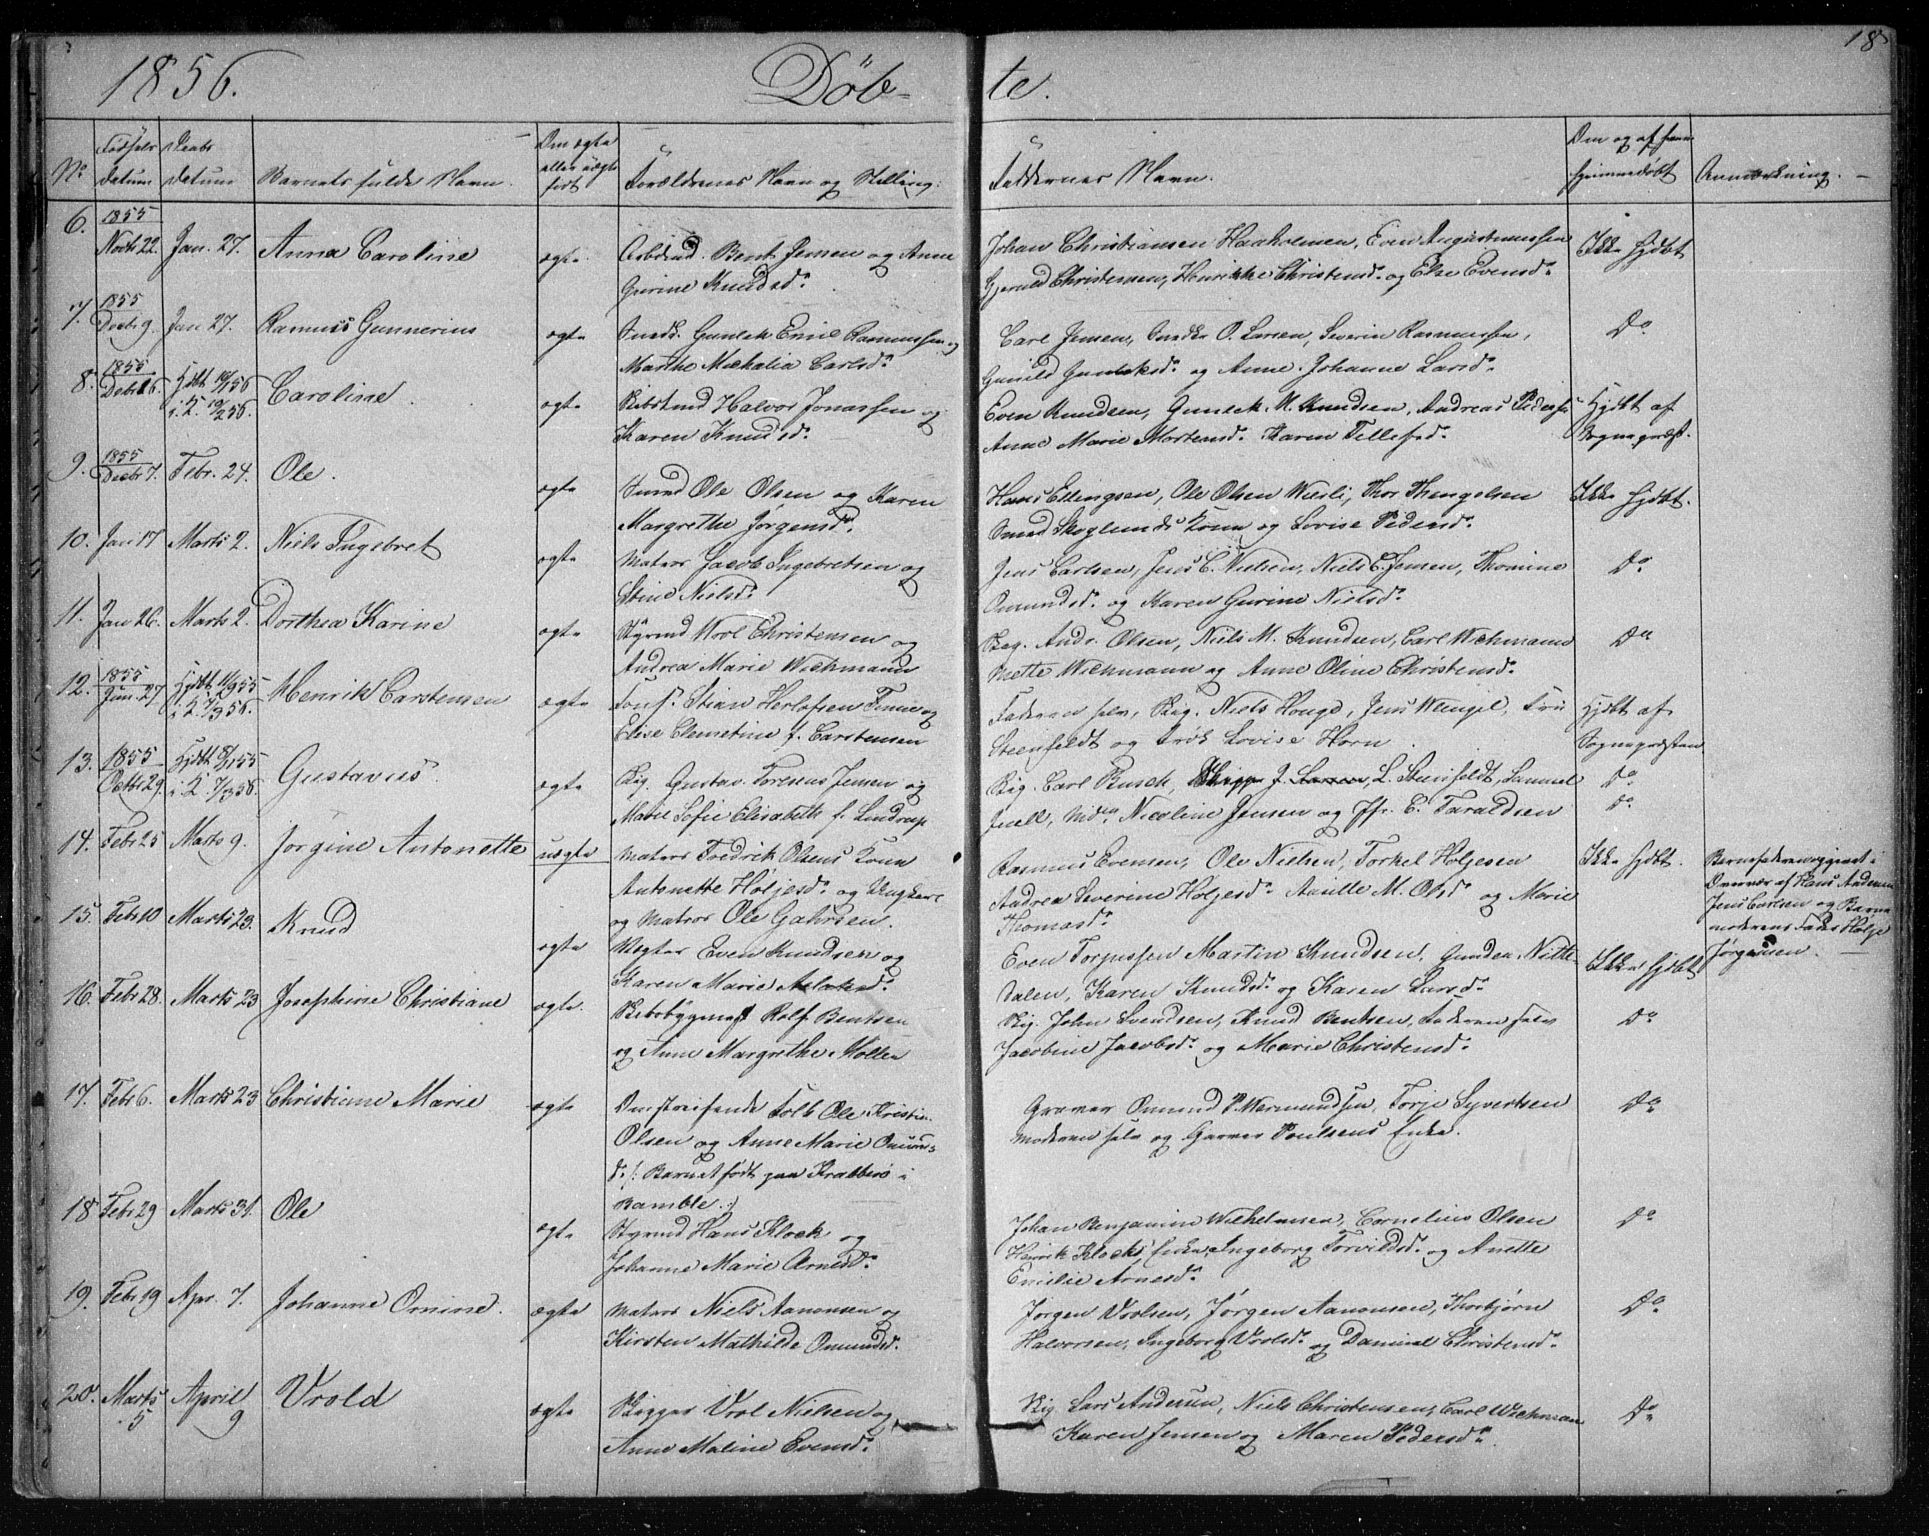 1856. Døb- te. 18
No Fødsels Datum Daabs Datum Barnets fulde Navn. Om ægte eller uægte født Forældrenes Navn og Stilling. Faddernes Navn. Om og af hvem hjemmedøbt Anmærkning.
6. 1855 Novbr 22. Jan. 27. Anna Caroline ægte Bent Jensen og Anne
Gurine Knudsd.
Johan Christiansen Haaholmen, Even Augustinussen Ikke hjdbt
Gjeruld Christensen, Henrikke Christensd. og Else Evensd.
7. 1855 Decbr 9. Jan 27. Rasmus Gunnerius ægte Gunlek Emil Rasmussen og
Marthe Michalia Carlsd.
Carl Jensen, Snedker O. Larsen, Severin Rasmussen, Do
Gunild Gunleksd. og Anne Johanne Larsd.
8. 1855 Debr 26. Hjdbt 10/1 56 i K. 10/2 56. Caroline. ægte Halvor Jonassen og
Karen Knudsd.
Even Knudsen, Gunlek M. Knudsen, Andreas Pedersen Hjdbt af
Anne Marie Mortensd. Karen Tellefsd. Sognepræst.
9. 1855 Decbr 7. Febr. 24. Ole. ægte Ole Olsen og Karen
Margrethe Jørgensd.
Hans Ellingsen, Ole Olsen Werli, Thor Thengelsen Ikke hjdbt.
Smed Skoglunds Kone og Lovise Pedersd.
10. Jan 17 Marts 2. Niels Ingebret ægte Matros Jacob Ingebretsen og
Stine Nielsd.
Jens Carlsen, Jens C. Nielsen, Niels C. Jensen, Thomine Do
Omundsd. og Karen Gurine Nielsd.
11. Jan 26. Marts 2. Dorthea Karine ægte Styrmd Wrol Christensen og
Andrea Marie Wichmann
Skg. Andr. Olsen, Niels M. Knudsen, Carl Wichmann Do
Mette Wichmann og Anne Oline Christensd.
12. 1855 Jun. 27 Hjdbt 11/9 55 i K. 7/3 56. Henrik Carstensen ægte Stian Herlofsen Finne og
Elise Clemetine f. Carstensen
Faderen selv, Skg. Niels Houge, Jens Wengel, Fru Hjdbt af
Steenfeldt og Frøk Lovise Horn. Sognepræsten
13. 1855 Octbr 29. Hjdbt 8/1 55 i K. 7/3 56. Gustavus. ægte Skg. Gustav Foresus Jensen og
Marie Sofie Elisabeth f. Lindrup
Skg. Carl Busch, J. Larsen, L. Steenfeldt, Samuel Do
Juell, Mdm Nicoline Jensen og Jfr. E. Taraldsen Do
14. Febr 25 Marts 9. Jørgine Antonette uægte Matros Fredrik Olsens Kone
Antonette Holjesd. og Ungkarl
og Matros Ole Gahrsen.
Rasmus Evensen, Ole Nielsen, Torkel Holjesen Ikke hjdbt.
Andrea Severine Holjesd. Anulle M. Olsd og Marie
Thomasd.
Barnefaderen opgivet i
Overvær af Hans Andersen
Jens Carlsen og Barne-
moderens Fader Holje
Jørgensen.
15. Febr 10 Marts 23. Knud ægte Vægter Even Knudsen og
Karen Marie Aslaksd.
Even Torjussen Martin Knudsen, Gunder Nitte- Ikke hjdbt
dalen, Karen Knudsd. og Karen Larsd.
16. Febr 28. Marts 23 Josephine Christiane ægte. Skibsbygmest Rolf Bentsen
og Anne Margrethe Møller
Skg. John Svendsen, Knud Bentsen, Faderen selv Do
Jacobine Jacobsd. og Marie Christensd.
17. Febr 6. Marts 23 Christiane Marie ægte Omstreifende Folk Ole Kristin
Olsen og Anne Marie Omunds-
d. /: Barnet født paa Krabberø i
Bamble :/
Graver Omund P. Wermundsen, Torje Syvertsen Do
Moderen selv og Garver Poulsens Enke.
18 Febr 29 Marts 31. Ole ægte Styrmd Hans Klock og
Johanne Marie Arnesd.
Johan Benjamin Wilhelmsen, Cornelius Olsen Do
Henrik Klocks Enke, Ingeborg Torvildsd. og Anette
Emilie Arnesd.
19. Febr 19 Apr. 7. Johanne Omine. ægte Matros Niels Aanonsen og
Kirsten Mathilde Omundsd.
Jørgen Vrolsen, Jørgen Aanonsen, Thorbjørn Do
Halvorsen, Ingeborg Vrolsd. og Daminal Christensd.
20. Marts 5 April 9 Vrold ægte Skipper Vrol Nielsen og
Anne Maline Evensd.
Skg. Lars Andersen, Niels Christensen, Carl Wichman Do
Karen Jensen og Maren Pedersd.